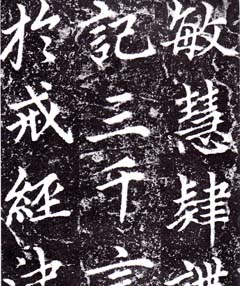 敏慧肄
記三千言
於戒經律